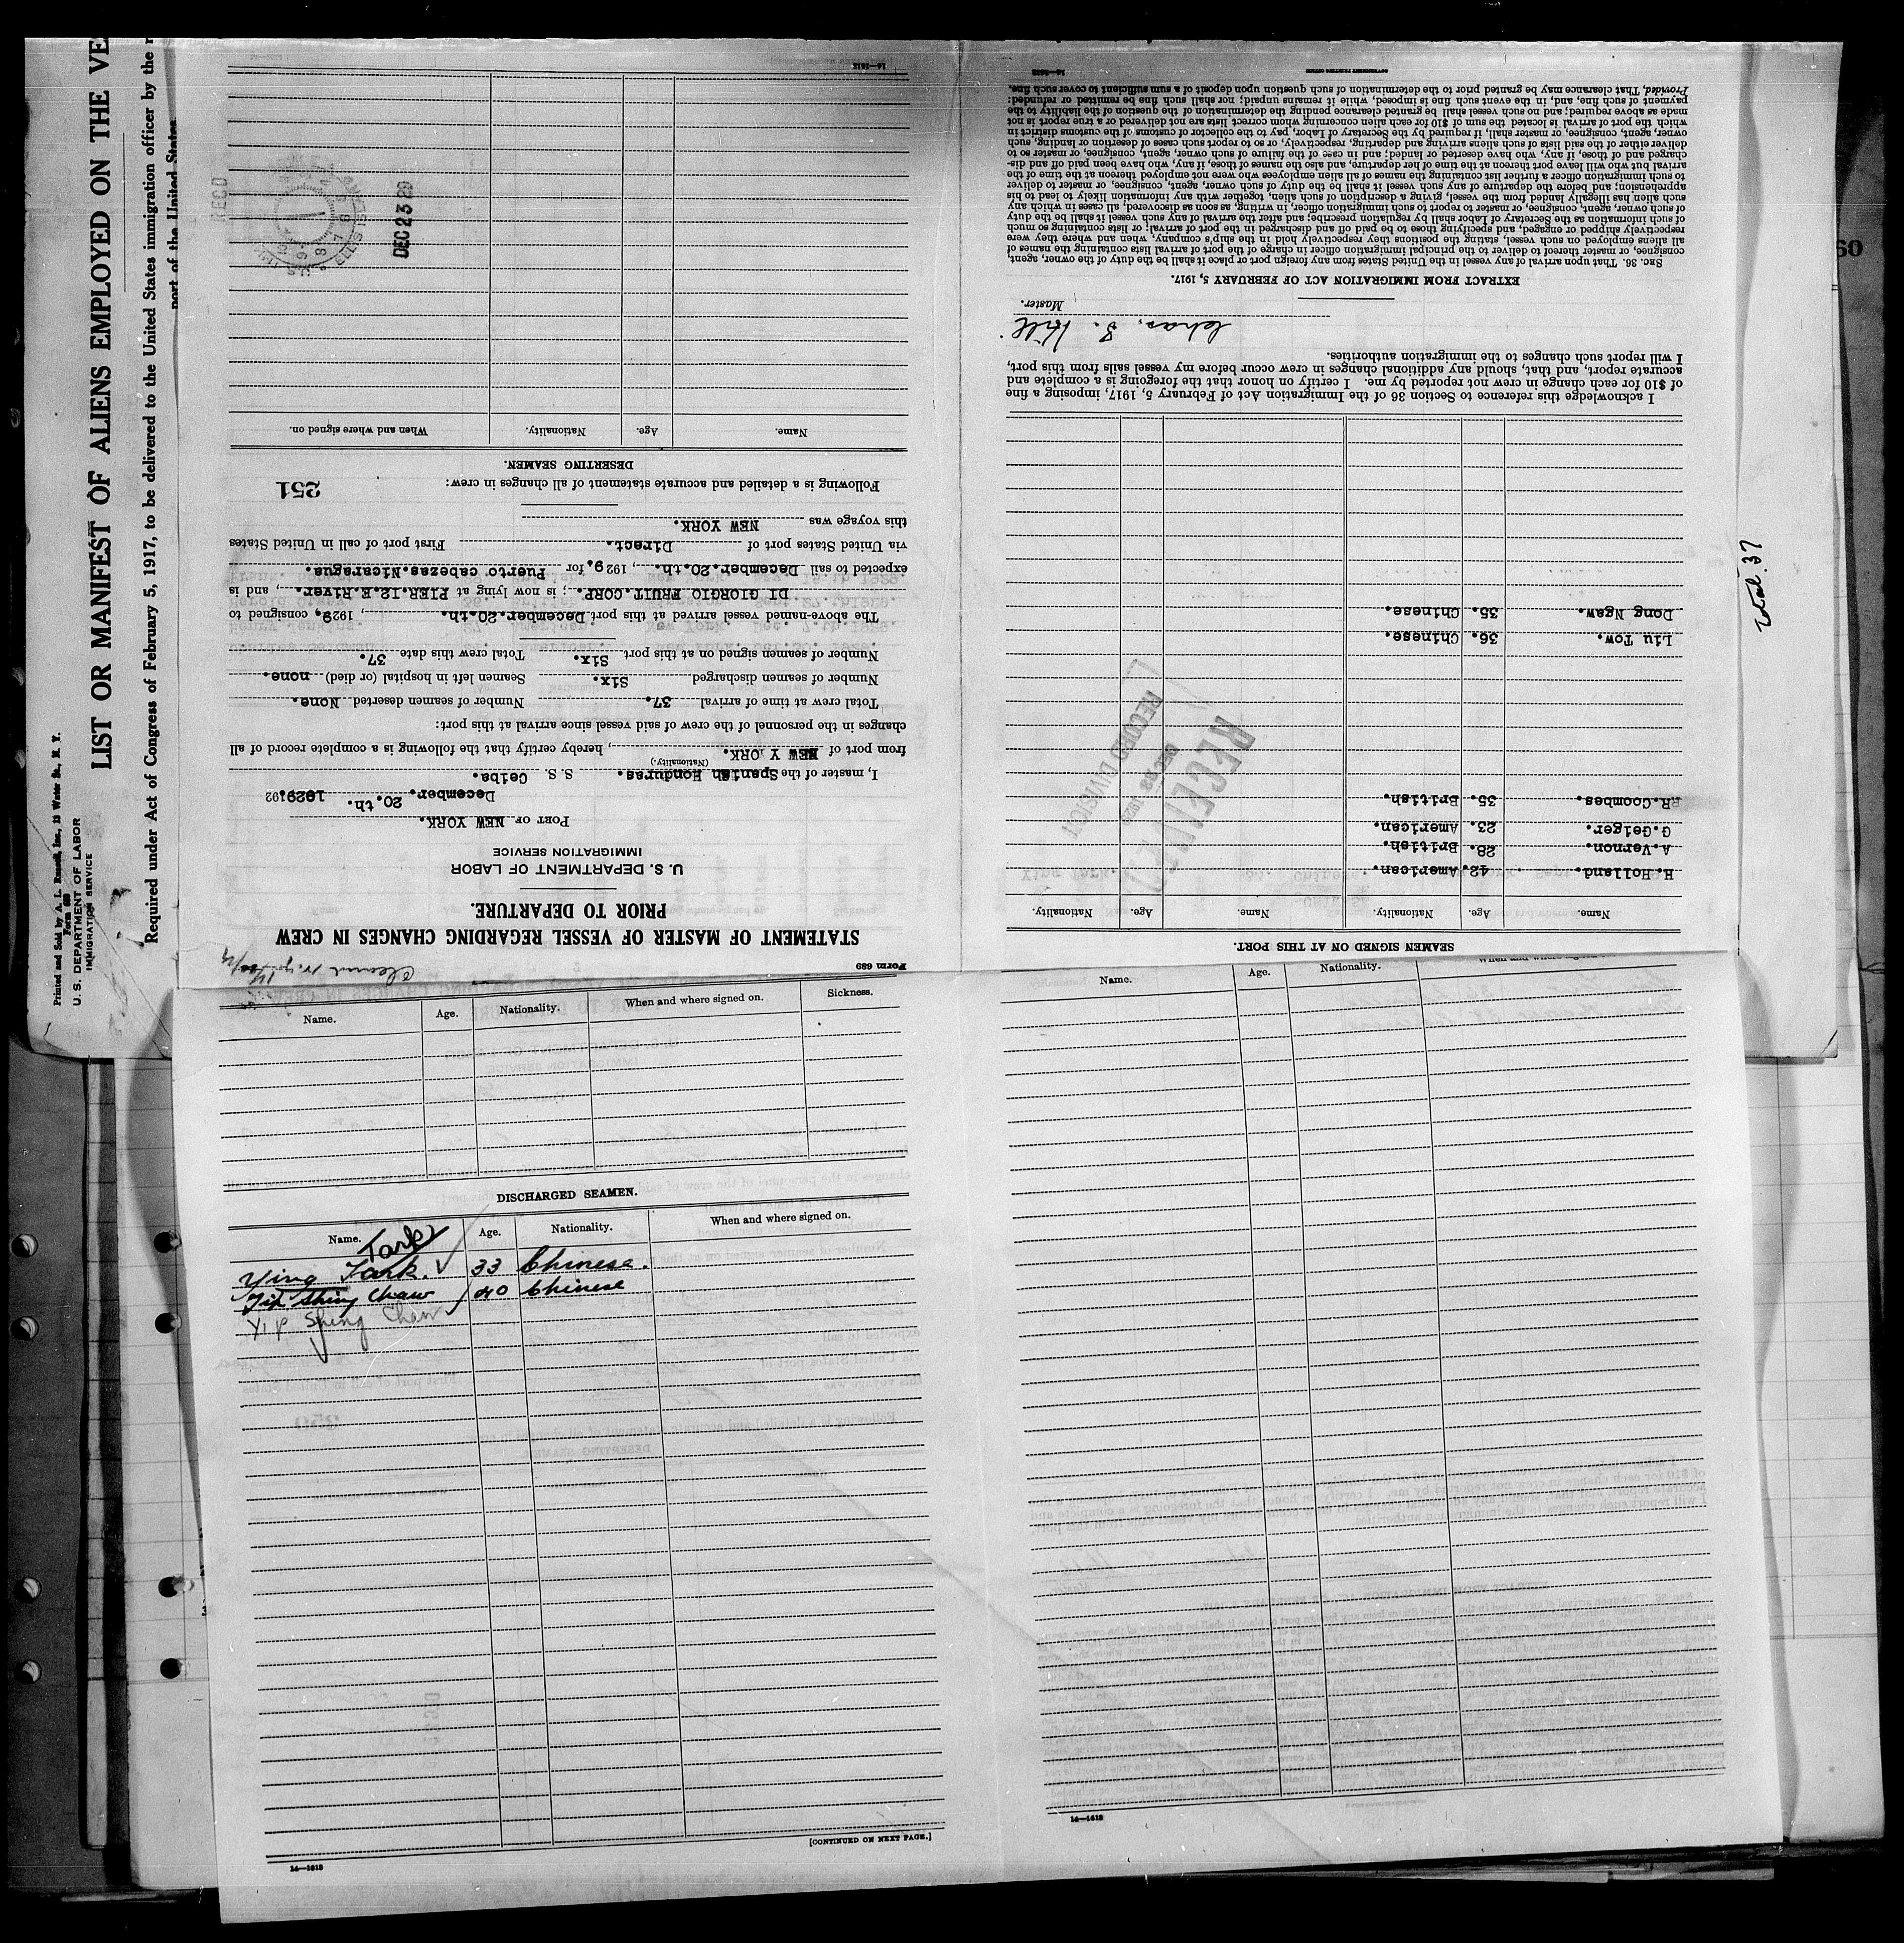 Printed and Sold by A. L. Russell, Inc., 13 Water St., N. Y.
Form 680
U. S. DEPARTMENT OF LABOR
IMMIGRATION SERVICE
LIST OR MANIFEST OF ALIENS EMPLOYED ON THE VE
Required under Act of Congress of February 5, 1917, to be delivered to the United States immigration officer by the r
port of the United States
Form 689
STATEMENT OF MASTER OF VESSEL REGARDING CHANGES IN CREW
PRIOR TO DEPARTURE.
U. S. DEPARTMENT OF LABOR
IMMIGRATION SERVICE
PORT OF NEW YORK.
December. 20.th. 1929. 192
I, master of the Spanish Honduras. S. S. Ceiba.
(Nationality.)
from port of NEW Y ORK. , hereby certify that the following is a complete record of all
changes in the personnel of the crew of said vessel since arrival at this port:
Total crew at time of arrival 37. Number of seamen deserted None.
Number of seamen discharged Six. Seamen left in hospital (or died) none.
Number of seamen signed on at this port Six. Total crew this date 37.
The above-named vessel arrived at this port December.20.th. , 1929, consigned to
DI GIORGIO FRUIT.CORP. ; is now lying at PIER.12.E.River. , and is
expected to sail December.20.th. , 1929, for Puerto cabezas.Nicaragua.
via United States port of Direct. First port of call in United States
this voyage was NEW YORK.
Following is a detailed and accurate statement of all changes in crew:
251
DESERTING SEAMEN.
Name. Age. Nationality. When and where signed on.
DEC 23 29
REC'D
14—1612
SEAMEN SIGNED ON AT THIS PORT.
Name. Age. Nationality. Name. Age. Nationality.
H.Holland. 42. American.
A.Vernon. 28. British.
G.Geiger. 23. American.
R.Coombes. 35. British.
RECEIVED
DEC 23 1929
RECORD DIVISION
Liu Tow. 36. Chinese.
Dong Ngaw. 35. Chinese.
I acknowledge this reference to Section 36 of the Immigration Act of February 5, 1917, imposing a fine
of $10 for each change in crew not reported by me. I certify on honor that the foregoing is a complete and
accurate report, and that, should any additional changes in crew occur before my vessel sails from this port,
I will report such changes to the immigration authorities.
Master.
EXTRACT FROM IMMIGRATION ACT OF FEBRUARY 5, 1917.
SEC. 36. That upon arrival of any vessel in the United States from any foreign port or place it shall be the duty of the owner, agent,
consignee, or master thereof to deliver to the principal immigration officer in charge of the port of arrival lists containing the names of
all aliens employed on such vessel, stating the positions they respectively hold in the ship's company, when and where they were
respectively shipped or engaged, and specifying those to be paid off and discharged in the port of arrival; or lists containing so much
of such information as the Secretary of Labor shall by regulation prescribe; and after the arrival of any such vessel it shall be the duty
of such owner, agent, consignee, or master to report to such immigration officer, in writing, as soon as discovered, all cases in which any
such alien has illegally landed from the vessel, giving a description of such alien, together with any information likely to lead to his
apprehension; and before the departure of any such vessel it shall be the duty of such owner, agent, consignee, or master to deliver
to such immigration officer a further list containing the names of all alien employees who were not employed thereon at the time of the
arrival but who will leave port thereon at the time of her departure, and also the names of those, if any, who have been paid off and dis-
charged and of those, if any, who have deserted or landed; and in case of the failure of such owner, agent, consignee, or master so to
deliver either of the said lists of such aliens arriving and departing, respectively, or so to report such cases of desertion or landing, such
owner, agent, consignee, or master shall, if required by the Secretary of Labor, pay to the collector of customs of the customs district in
which the port of arrival is located the sum of $10 for each alien concerning whom correct lists are not delivered or a true report is not
made as above required; and no such vessel shall be granted clearance pending the determination of the question of the liability to the
payment of such fine, and, in the event such fine is imposed, while it remains unpaid; nor shall such fine be remitted or refunded:
Provided, That clearance may be granted prior to the determination of such question upon deposit of a sum sufficient to cover such fine.
14—1612
GOVERNMENT PRINTING OFFICE
total 37
60
Name. Age. Nationality. When and where signed on. Sickness.
DISCHARGED SEAMEN.
Name. Age. Nationality. When and where signed on.
Tark
Ying Tark. 33 Chinese.
Yip Shing Chaw 40 Chinese
Yip Shing Chaw
14—1612
[CONTINUED ON NEXT PAGE.]
Name. Age. Nationality. When and where signed on.
14—1612